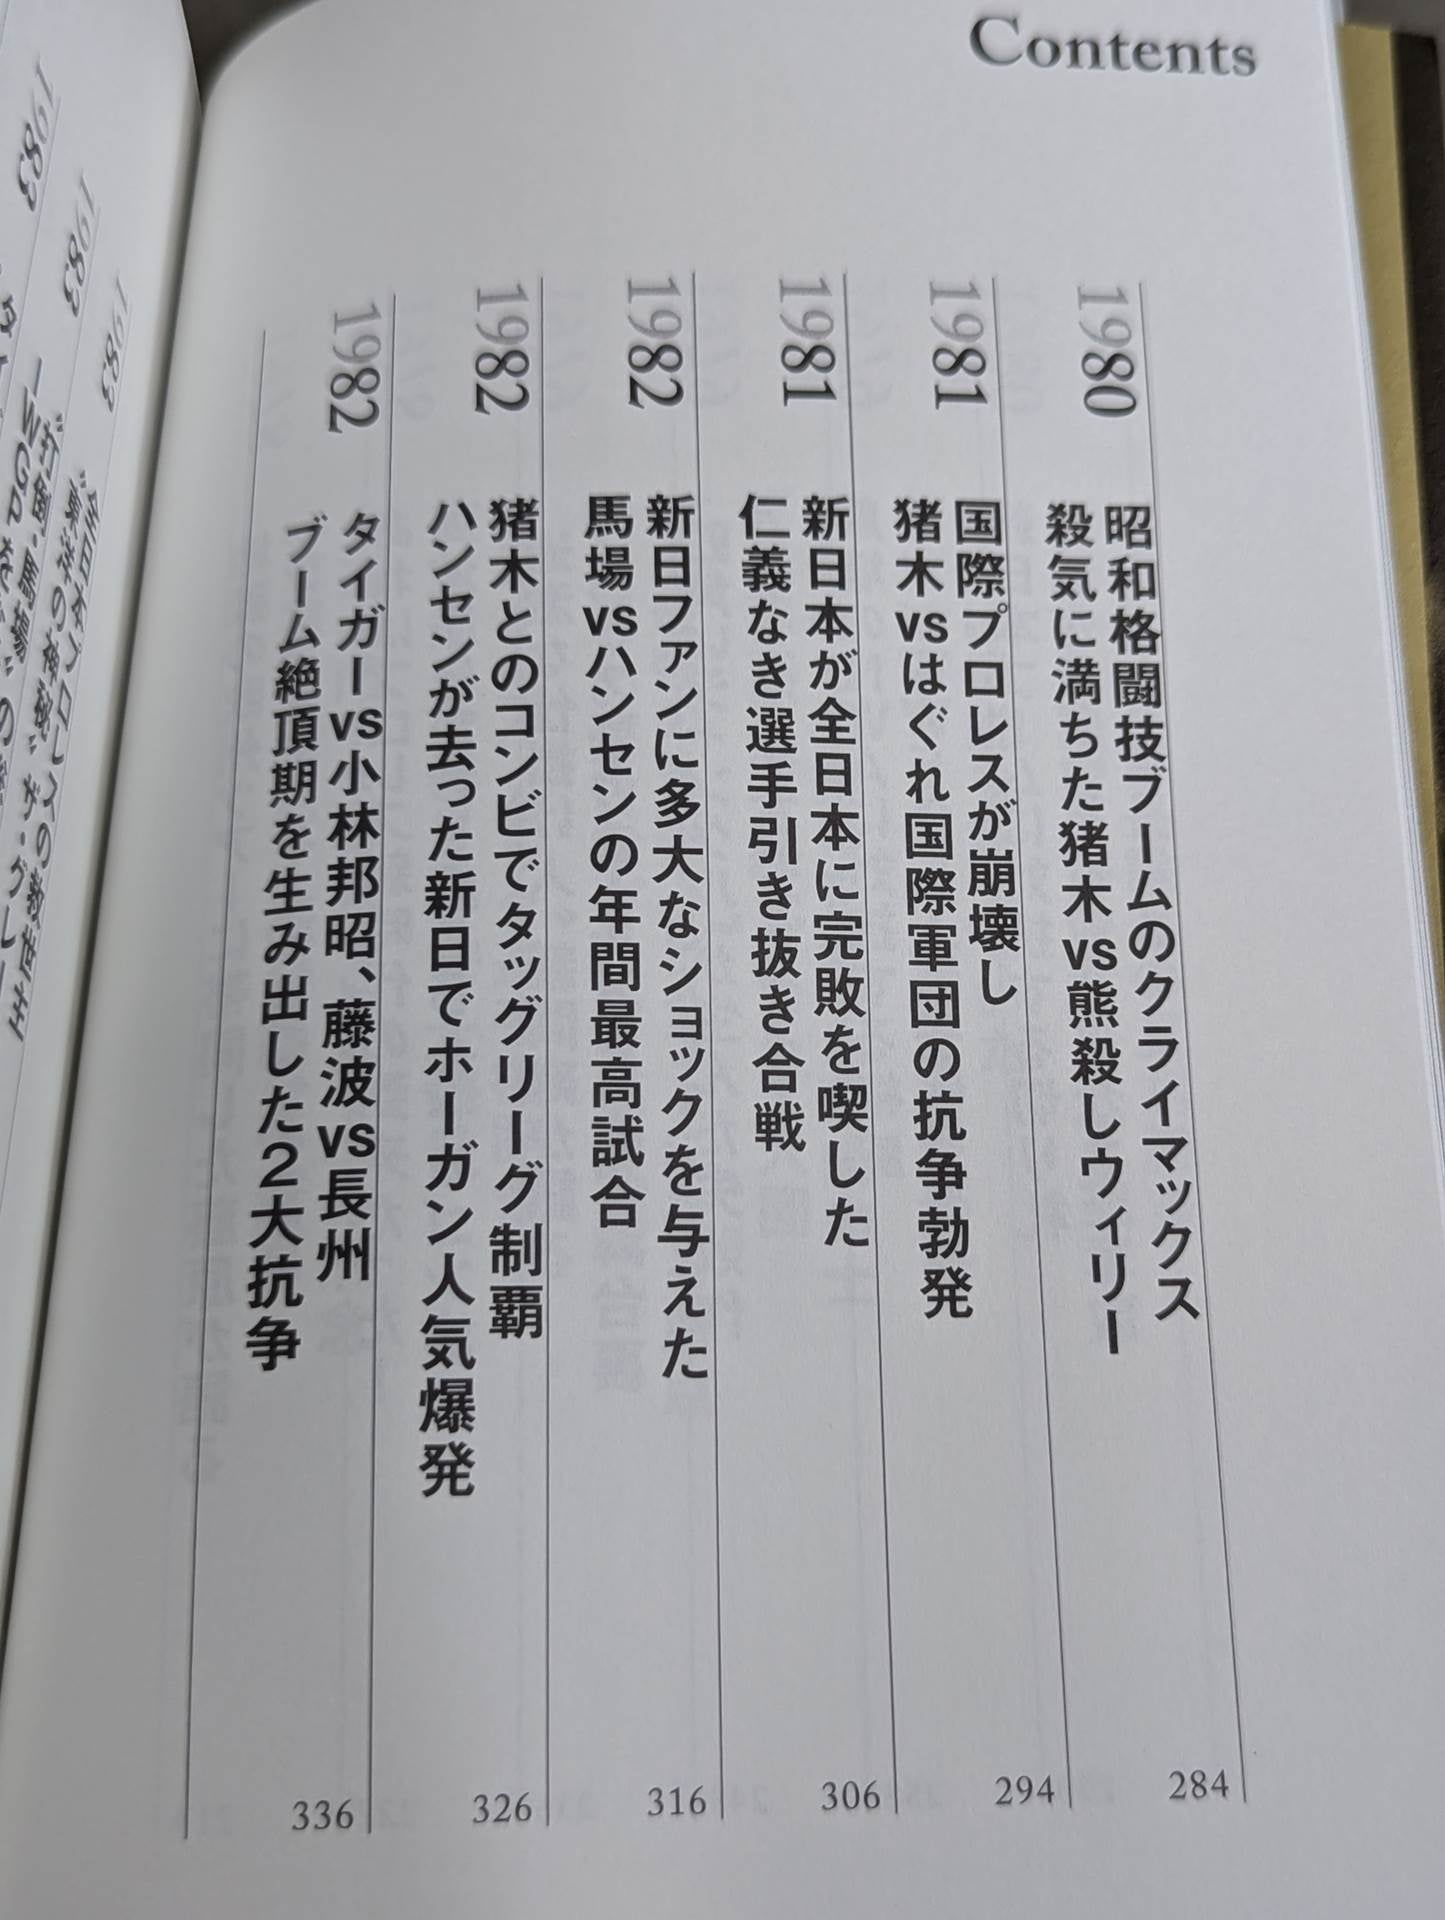 Contents
1980
昭和格闘技ブームのクライマックス
殺気に満ちた猪木vs熊殺しウィリー
284
1981
国際プロレスが崩壊し
猪木vsはぐれ国際軍団の抗争勃発
294
1981
新日本が全日本に完敗を喫した
仁義なき選手引き抜き合戦
306
1982
新日ファンに多大なショックを与えた
馬場vsハンセンの年間最高試合
316
1982
猪木とのコンビでタッグリーグ制覇
ハンセンが去った新日でホーガン人気爆発
326
1982
タイガーvs小林邦昭、藤波vs長州
ブーム絶頂期を生み出した2大抗争
336
1983
"全日本プロレスの救世主
1983
1983